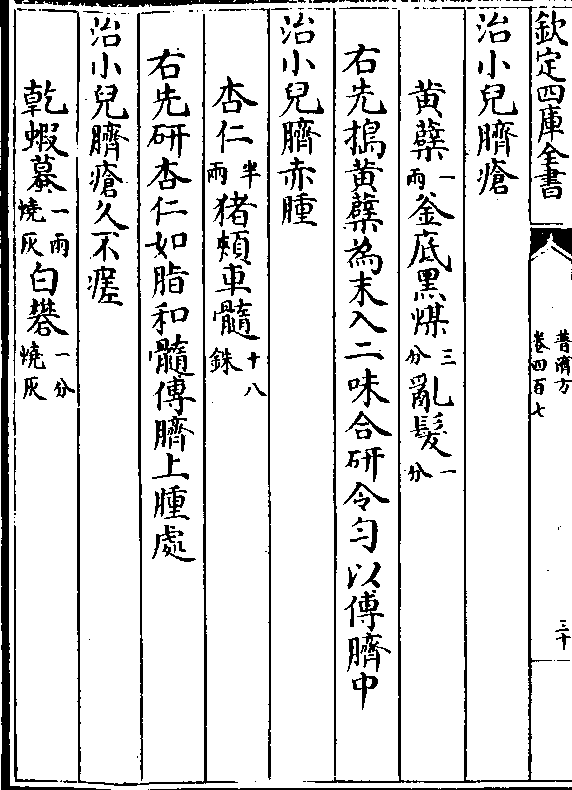 欽定四庫全書
普濟方
卷四百七
三十
治小兒臍瘡
黃蘗一兩釜底黑煤三分亂髮一分
右先搗黃蘗為末入二味合研令勻以傅臍中
治小兒臍赤腫
杏仁半兩豬頰車髓十八銖
右先研杏仁如脂和髓傅臍上腫處
治小兒臍瘡久不瘥
乾蝦蟇一兩燒灰白礬一分燒灰